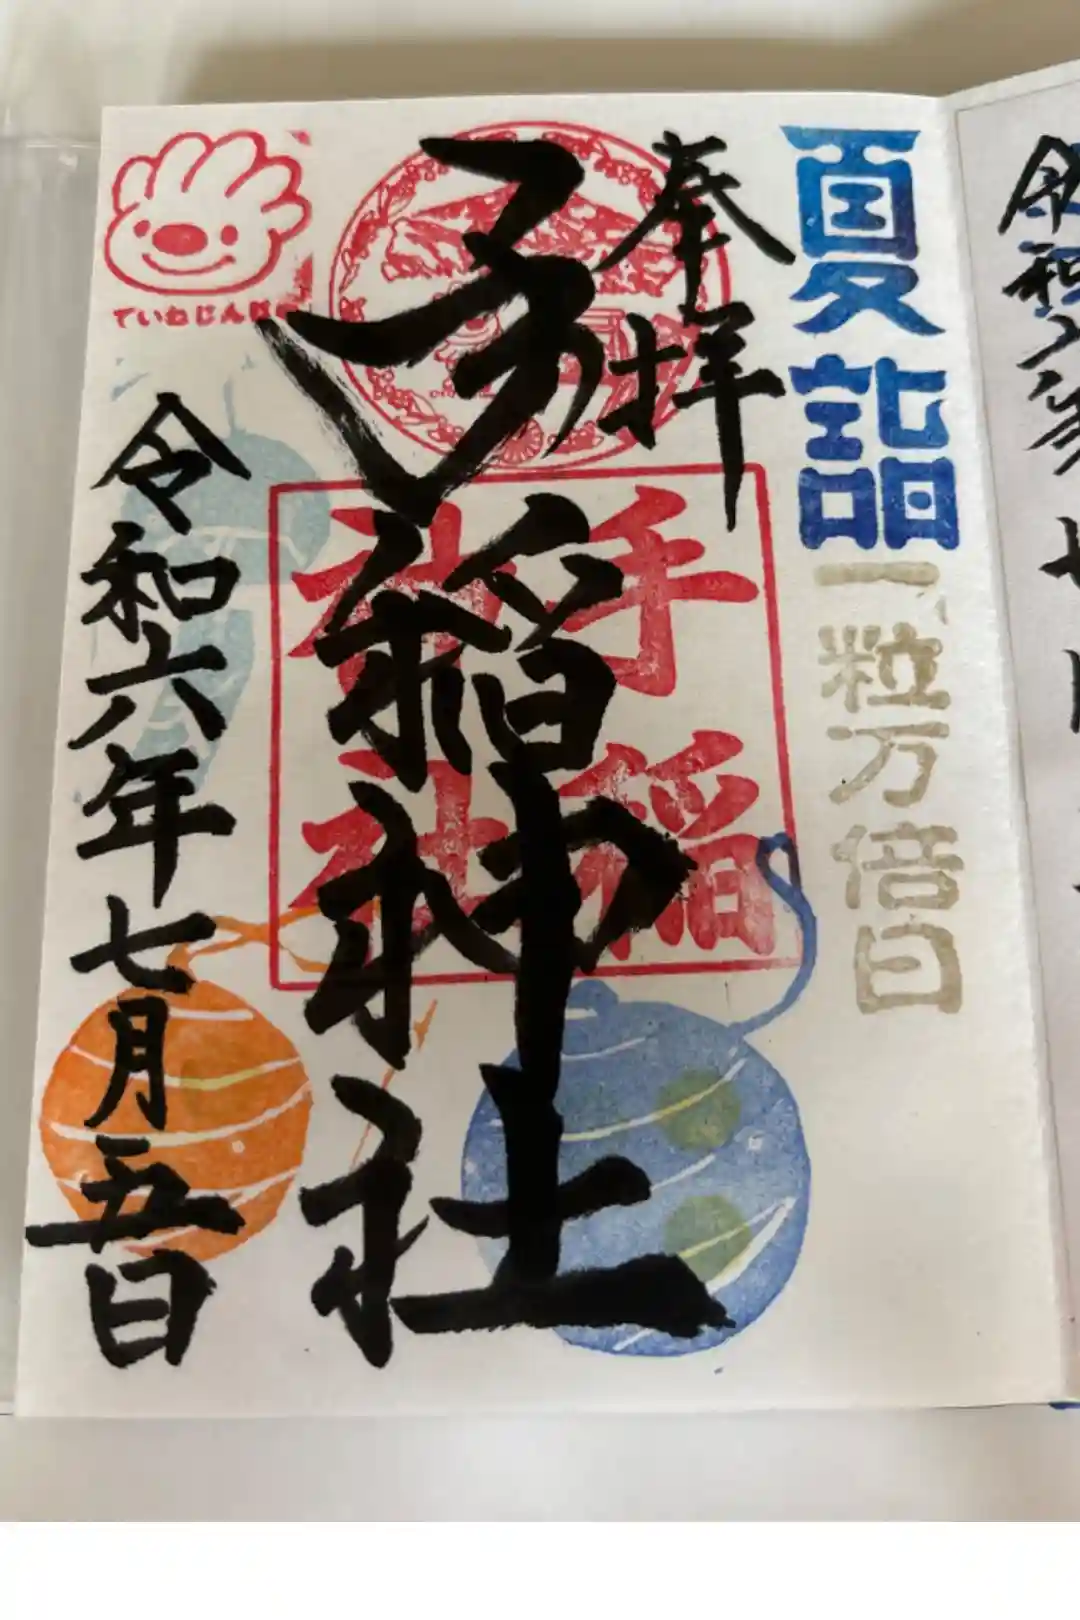 夏詣
一粒万倍日
奉拝
手稲神社
手稲
神社
ていねじんじゃ
令和六年七月五日
令和六年七月